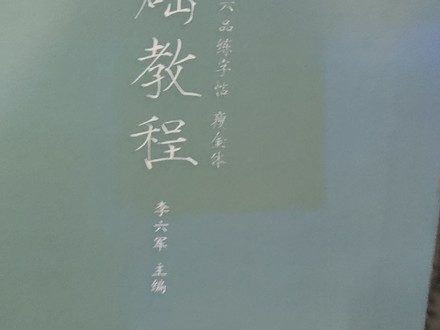 础教程
六品练字帖 瘦金体
李六军 主编